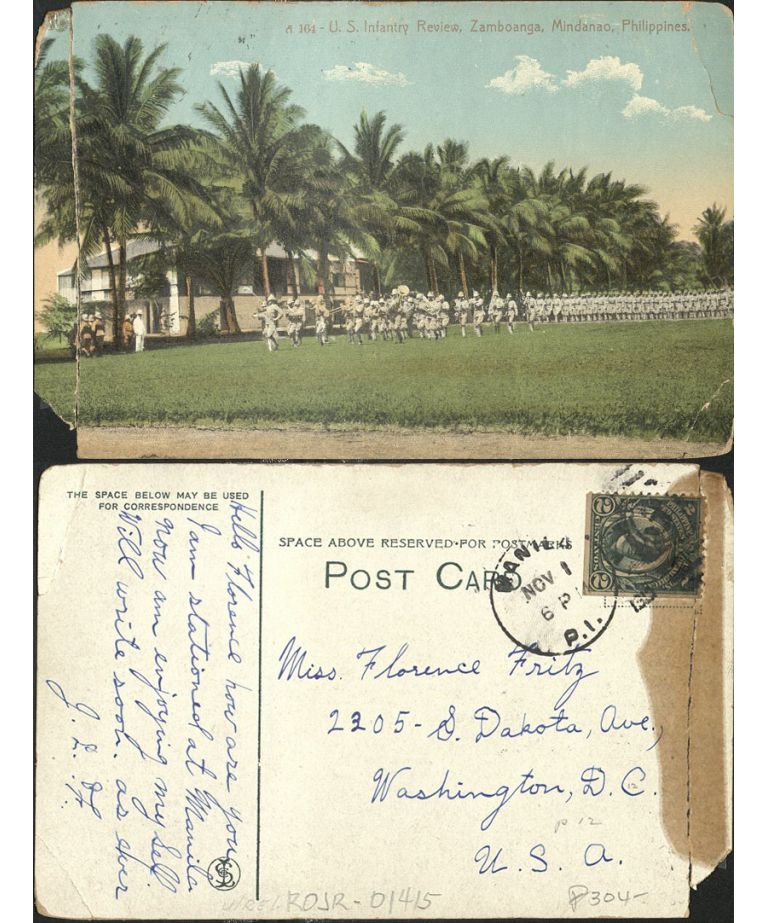 A 164 - U. S. Infantry Review, Zamboanga, Mindanao, Philippines.
THE SPACE BELOW MAY BE USED
FOR CORRESPONDENCE
Hello Florence how are you
I am stationed at Manila
now am enjoying my self
Will write soon. as ever
SPACE ABOVE RESERVED·FOR POSTMARKS
POST CARD
MANILA
NOV 1
6 P
P.I.
Miss. Florence Fritz
2205-S. Dakota, Ave,
Washington, D.C.
U. S. A.
p 12
ROJR - 01415
P304-